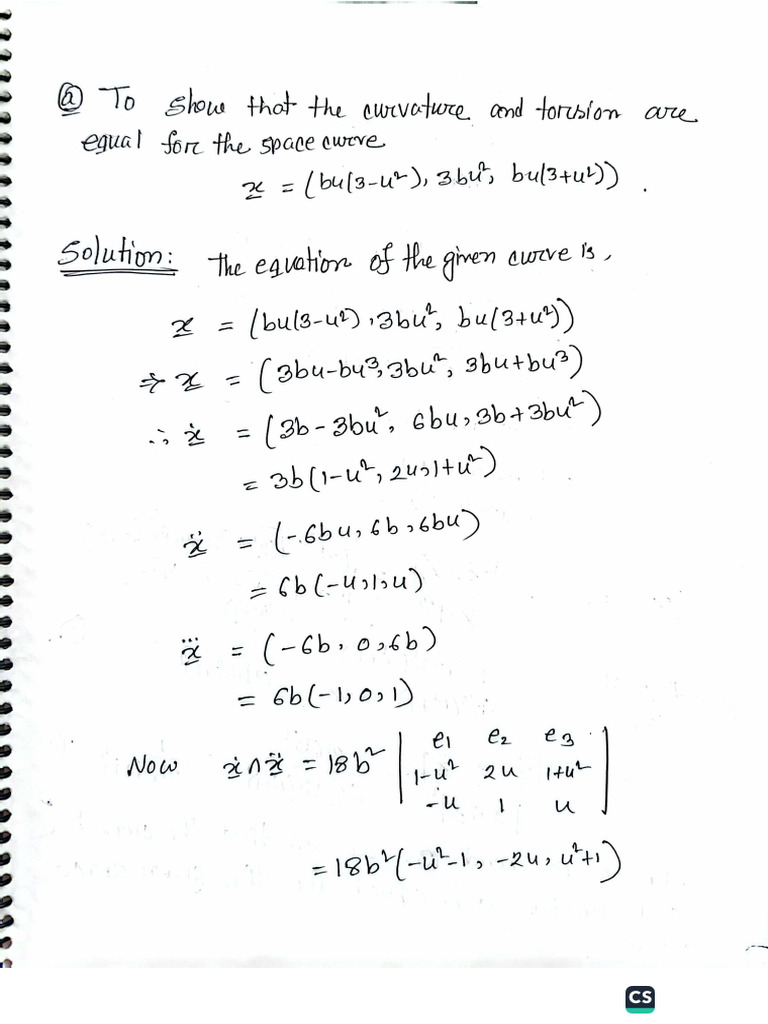 ⓐ To show that the curvature and torsion are
equal for the space curve
x = (bu(3-u²), 3bu², bu(3+u²)).
Solution: The equation of the given curve is,
x = (bu(3-u²), 3bu², bu(3+u²))
⇒ x = (3bu-bu³, 3bu², 3bu+bu³)
∴ ẋ = (3b-3bu², 6bu, 3b+3bu²)
= 3b(1-u², 2u, 1+u²)
ẍ = (-6bu, 6b, 6bu)
= 6b(-u, 1, u)
x⃛ = (-6b, 0, 6b)
= 6b(-1, 0, 1)
Now ẋ∧ẍ = 18b² | e₁ e₂ e₃
1-u² 2u 1+u²
-u 1 u |
= 18b²(-u²-1, -2u, u²+1)
CS